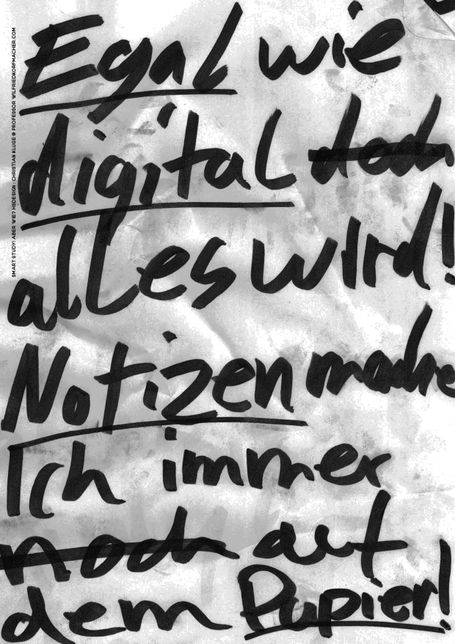 Egal wie
digital doch
alles wird!
Notizen mache
Ich immer
noch auf
dem Papier!
SMART STUDY: ABER WIE? CHRISTIAN KLUGE PROFESSOR WILFRIEDKORFMACHER.COM